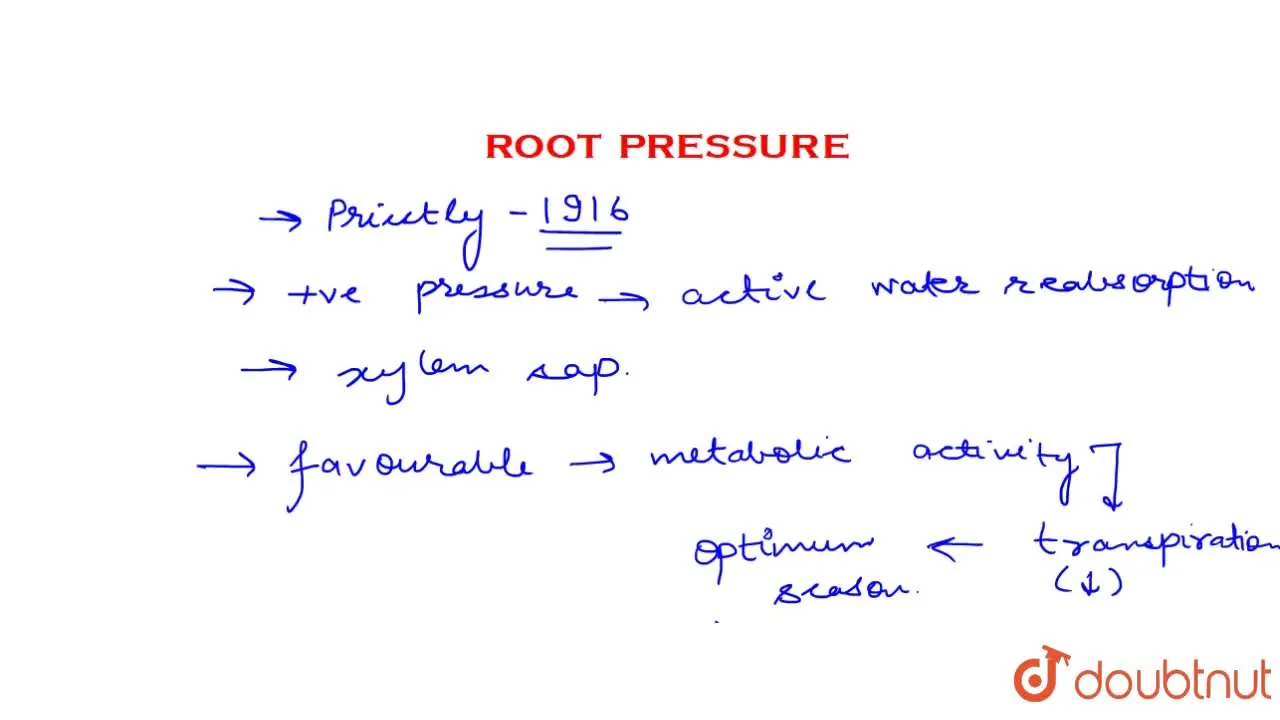 ROOT PRESSURE
→ Priestly - 1916
→ +ve pressure → active water reabsorption
→ xylem sap.
→ favourable → metabolic activity
optimum ← transpiration
season. (↓)
doubtnut